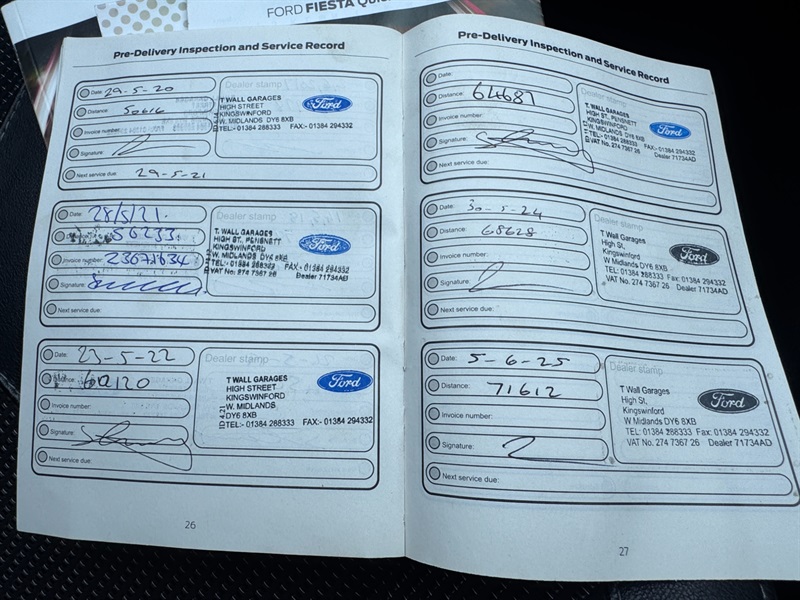 FORD FIESTA
Pre-Delivery Inspection and Service Record
Date: 29-5-20
Distance: 50616
Invoice number:
Signature:
Next service due: 29-5-21
Dealer stamp
T WALL GARAGES
HIGH STREET
KINGSWINFORD
W. MIDLANDS DY6 8XB
TEL:- 01384 288333 FAX:- 01384 294332
Ford
Date: 28/5/21.
56233.
Invoice number: 23671634
Signature:
Next service due:
Dealer stamp
T. WALL GARAGES
HIGH ST, PENSNETT
KINGSWINFORD
W. MIDLANDS DY6 8XB
TEL:- 01384 288333 FAX:- 01384 294332
VAT No: 274 7367 26 Dealer 71734AD
Ford
Date: 23-5-22
Distance: 60120
Invoice number:
Signature:
Next service due:
Dealer stamp
T WALL GARAGES
HIGH STREET
KINGSWINFORD
W. MIDLANDS
DY6 8XB
TEL:- 01384 288333 FAX:- 01384 294332
Ford
26
Pre-Delivery Inspection and Service Record
Date:
Distance: 64687
Invoice number:
Signature:
Next service due:
Dealer stamp
T. WALL GARAGES
HIGH ST, PENSNETT
KINGSWINFORD
W. MIDLANDS DY6 8XB
TEL:- 01384 288333 FAX:- 01384 294332
VAT No. 274 7367 26 Dealer 71734AD
Ford
Date: 30-5-24
Distance: 68628
Invoice number:
Signature:
Next service due:
Dealer stamp
T. Wall Garages
High St,
Kingswinford
W Midlands DY6 8XB
TEL: 01384 288333 Fax: 01384 294332
VAT No. 274 7367 26 Dealer 71734AD
Ford
Date: 5-6-25
Distance: 71612
Invoice number:
Signature:
Next service due:
Dealer stamp
T. Wall Garages
High St,
Kingswinford
W Midlands DY6 8XB
TEL: 01384 288333 Fax: 01384 294332
VAT No. 274 7367 26 Dealer 71734AD
Ford
27